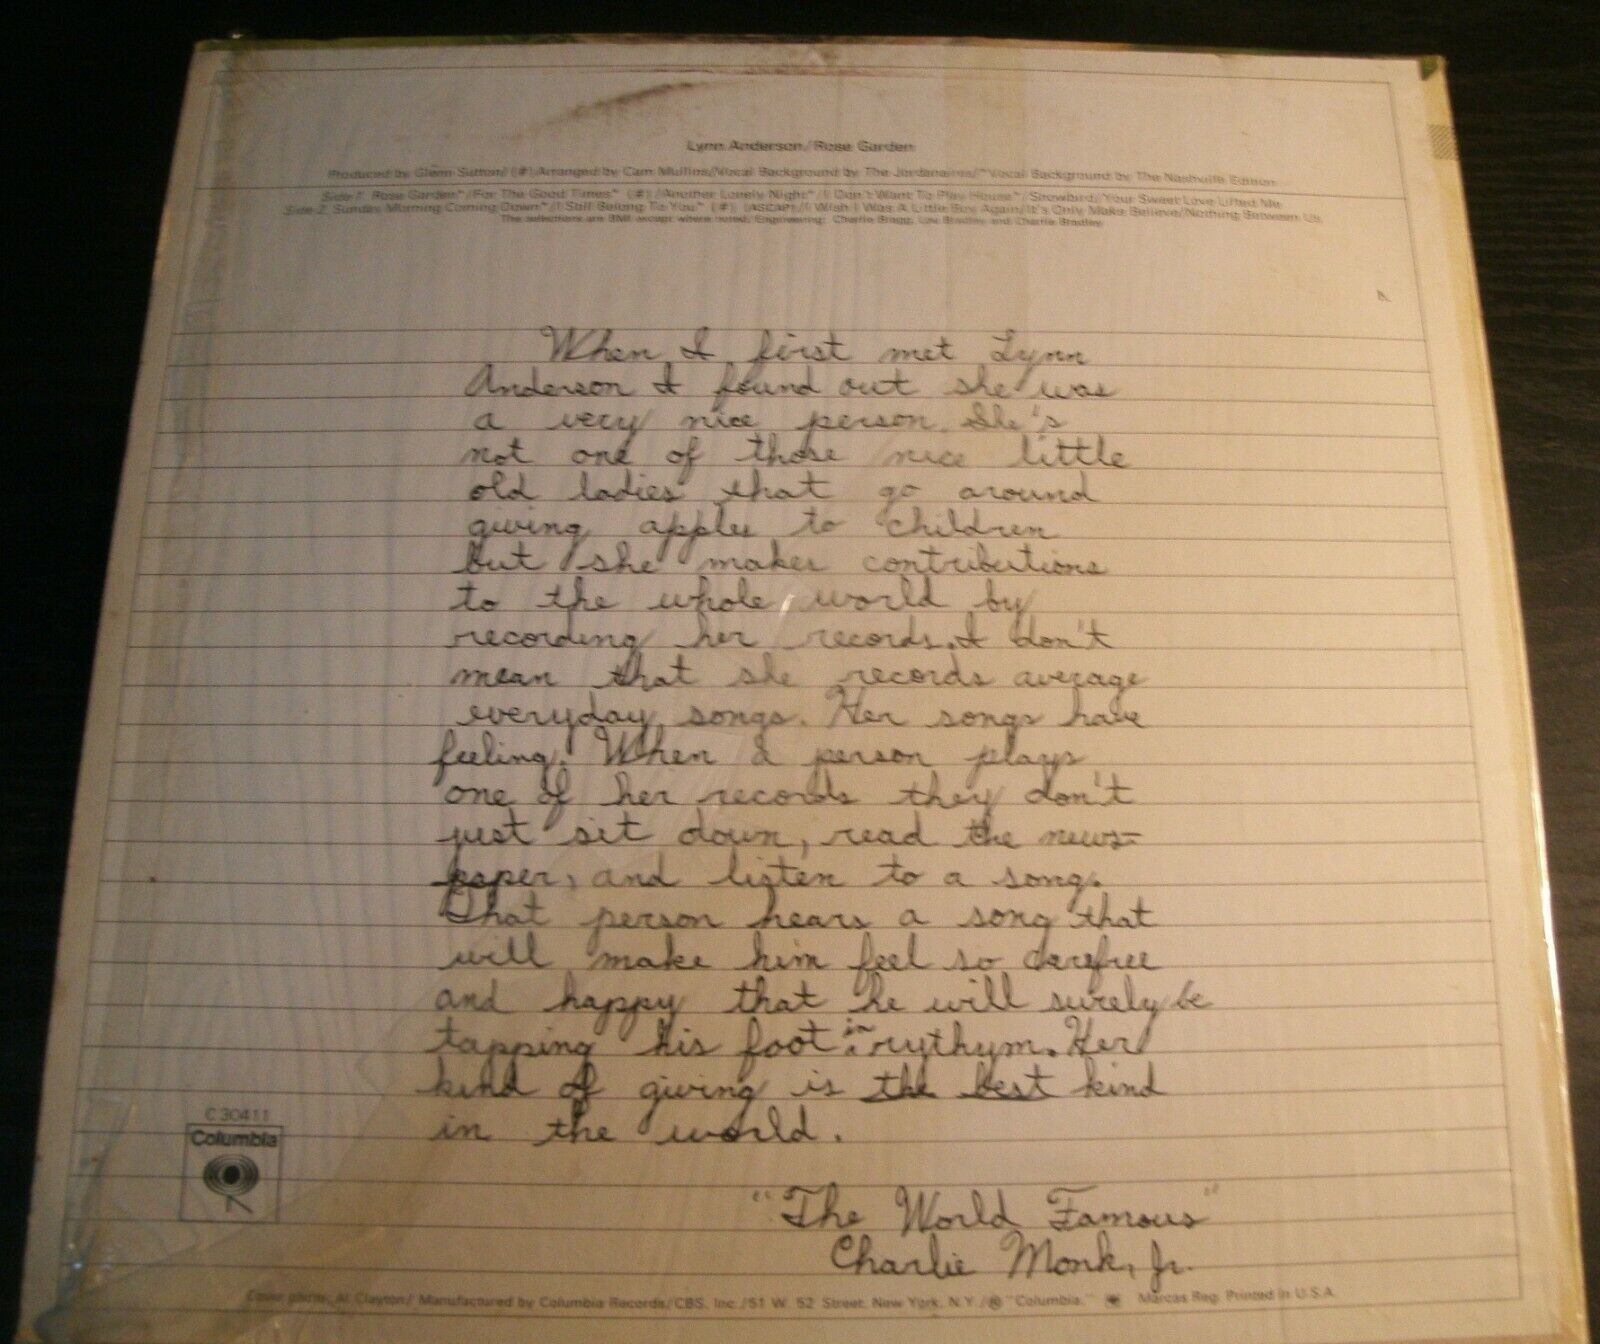 Lynn Anderson/Rose Garden
Produced by Glenn Sutton/ (#)Arranged by Cam Mullins/Vocal Background by The Jordanaires/*Vocal Background by The Nashville Edition
Side 1. Rose Garden*/For The Good Times* (#)/Another Lonely Night*/I Don't Want To Play House*/Snowbird/Your Sweet Love Lifted Me
Side 2. Sunday Morning Coming Down*/I Still Belong To You* (#) (ASCAP)/I Wish I Was A Little Boy Again/It's Only Make Believe/Nothing Between Us
The selections are BMI except where noted/Engineering: Charlie Bragg, Lou Bradley and Charlie Bradley
When I first met Lynn
Anderson I found out she was
a very nice person. She's
not one of those nice little
old ladies that go around
giving apples to children
but she makes contributions
to the whole world by
recording her records. I don't
mean that she records average
everyday songs. Her songs have
feeling. When a person plays
one of her records they don't
just sit down, read the news-
paper, and listen to a song.
That person hears a song that
will make him feel so carefree
and happy that he will surely be
tapping his foot in rythym. Her
kind of giving is the best kind
in the world.
C 30411
Columbia
"The World Famous"
Charlie Monk, Jr.
Cover photo: Al Clayton/ Manufactured by Columbia Records/CBS, Inc./51 W. 52 Street, New York, N.Y./® "Columbia," Marcas Reg. Printed in U.S.A.